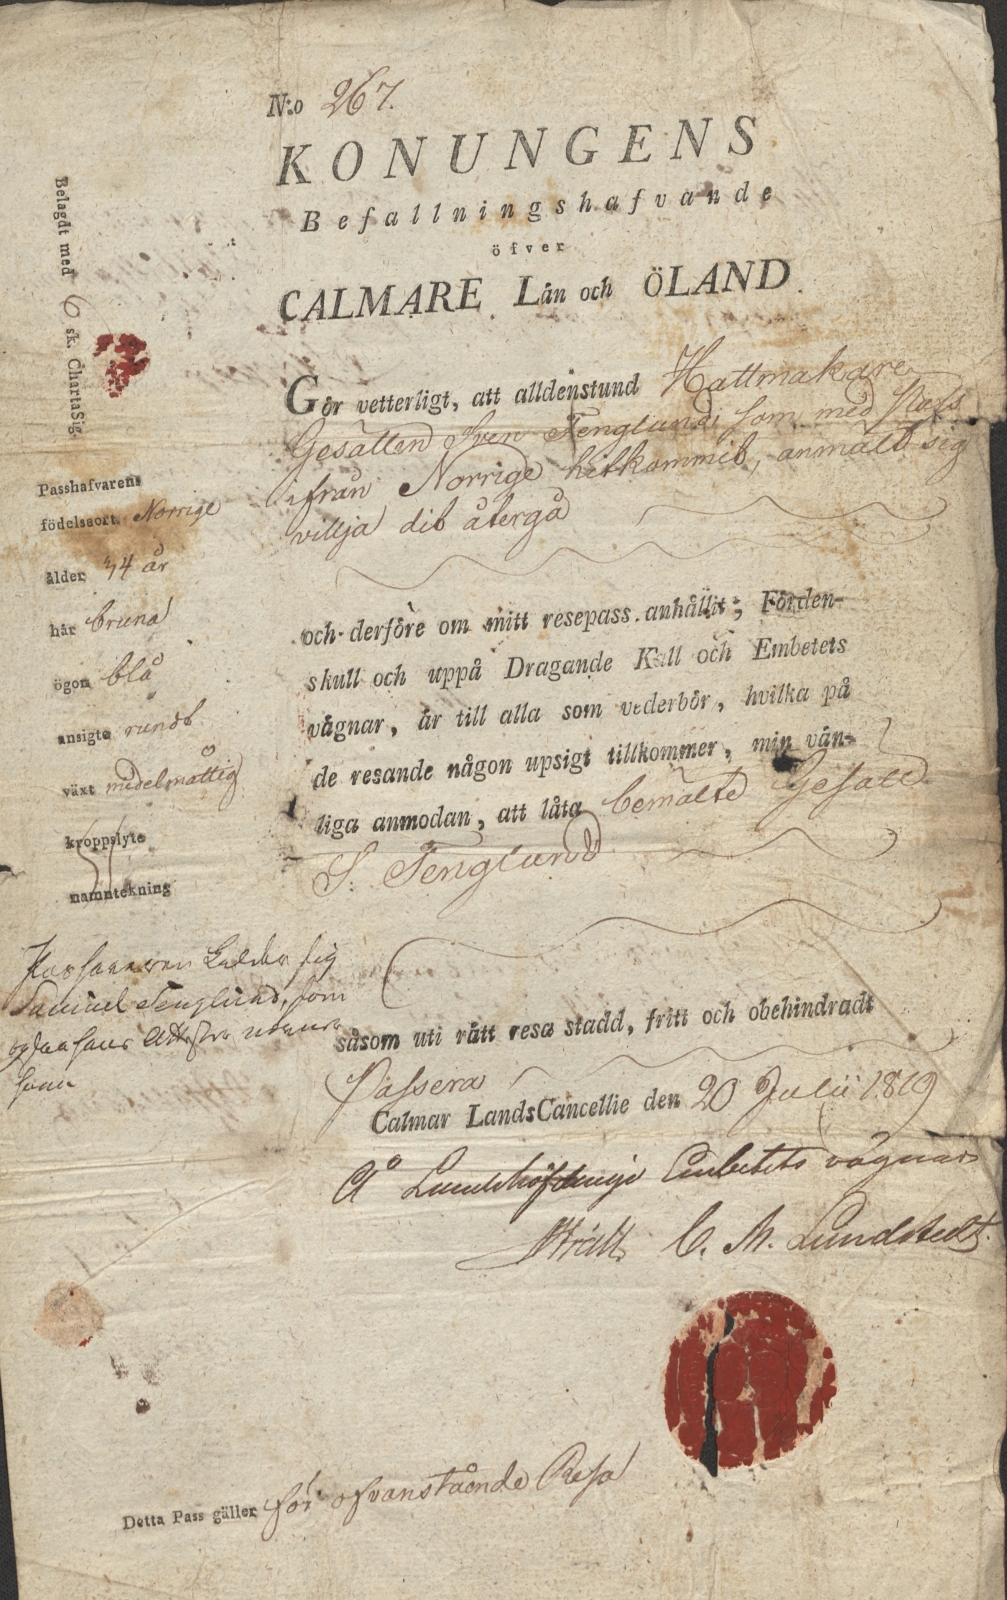 N:o 267.
KONUNGENS
Befallningshafvande
öfver
CALMARE Län och ÖLAND.
Belagdt med 6 sk. ChartaSig.
Gör vetterligt, att alldenstund Hattmakare
Gesällen Sven Tenglund som med Pass
ifrån Norrige hitkommit, anmält sig
villja dit återgå
Passhafvarens
födelseort Norrige
ålder 34 år
hår bruna
ögon blå
ansigte rundt
växt medelmåttig
kroppslyte
namntekning
och derföre om mitt resepass anhållit; Förden-
skull och uppå Dragande Kall och Embetets
vägnar, är till alla som vederbör, hvilka på
de resande någon upsigt tillkommer, min vän-
liga anmodan, att låta bemälte Gesäll
S. Tenglund
Samuel Tenglund, som
såsom uti rätt resa stadd, fritt och obehindradt
Passera
Calmar LandsCancellie den 20 Julii 1819
På Landshöfdinge Embetets vägnar
C. M. Lundstedt.
Detta Pass gäller för ofvanstående Resa